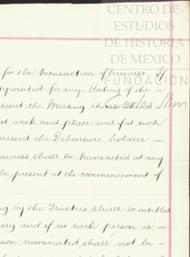 CENTRO DE
ESTUDIOS
DE HISTORIA
DE MEXICO
FUNDACIÓN
for the transaction of business. If
appointed for any Meeting of the
sent the Meeting shall
week and place and if at such
present the Debenture holders
business shall be transacted at any
be present at the commencement of
by the Trustees shall be entitled
and if no such person is
son nominated shall not be